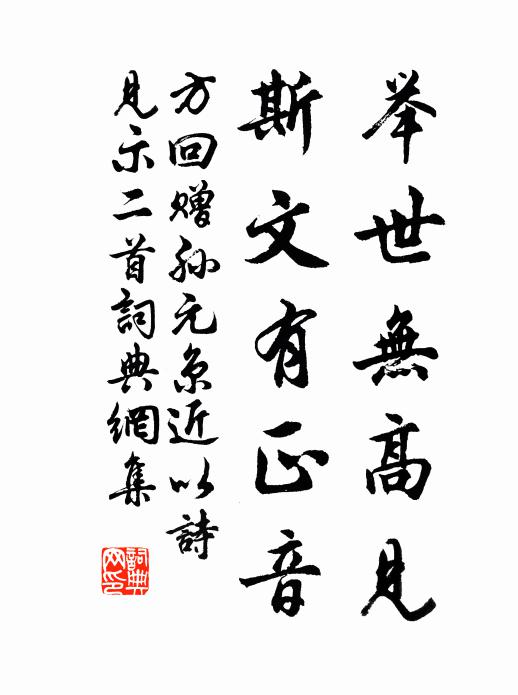 举世無高見
斯文有正音
方回贈孙元京近以詩
見示二首詞典網集
詞典网印